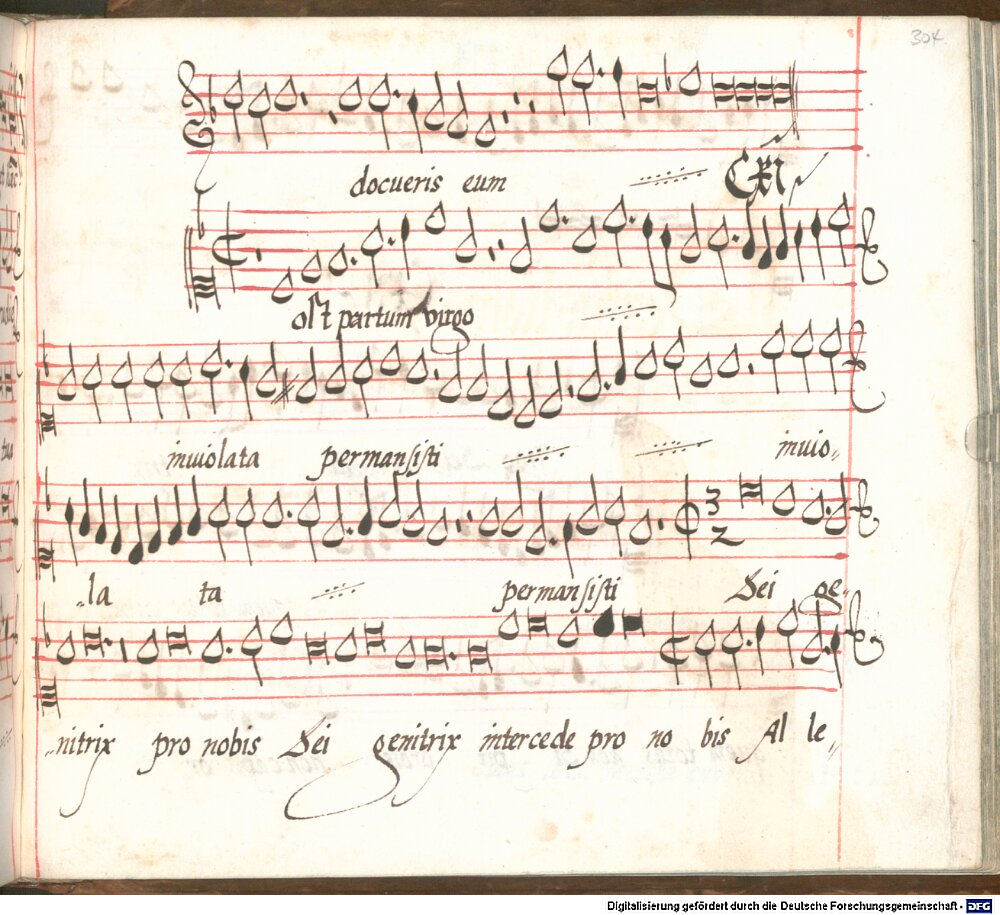 304
docueris eum
olst partum virgo
inuiolata permansisti inuio-
-la ta permansisti Dei ge-
3
2
-nitrix pro nobis Dei genitrix intercede pro no bis Al le-
Digitalisierung gefördert durch die Deutsche Forschungsgemeinschaft - DFG